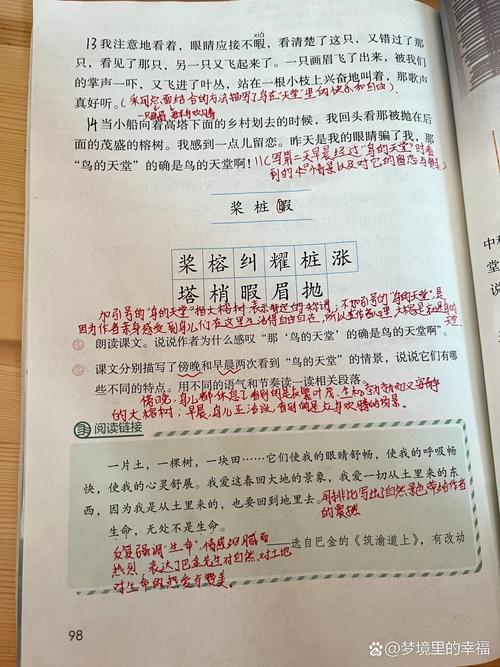 xiá
13我注意地看着，眼睛应接不暇，看清楚了这只，又错过了那
只，看见了那只，另一只又飞起来了。一只画眉飞了出来，被我们
的掌声一吓，又飞进了叶丛，站在一根小枝上兴奋地叫着，那歌声
真好听。(采用点面结合的方法描写了鸟在"天堂"里的快乐和自由)
14当小船向着高塔下面的乡村划去的时候，我回头看那被抛在后
面的茂盛的榕树。我感到一点儿留恋。昨天是我的眼睛骗了我，那
“鸟的天堂”的确是鸟的天堂啊！11(写第二天早晨经过"鸟的天堂"时看
到的情景以及对它的留恋与赞美)
桨 桩 暇
桨 榕 纠 耀 桩 涨
塔 梢 暇 眉 抛
加引号的"鸟的天堂"指大榕树，表示特定的称谓，不加引号的"鸟的天堂"是
因为作者亲身感受到鸟儿们在这里生活得自由自在，所以在作者心里大榕是
朗读课文。说说作者为什么感叹“那‘鸟的天堂’的确是鸟的天堂啊”。
课文分别描写了傍晚和早晨两次看到“鸟的天堂”的情景，说说它们有哪
些不同的特点。用不同的语气和节奏读一读相关段落。
傍晚，鸟儿都休息了看到的是枝繁叶茂、生机勃勃
的大榕树；早晨，鸟儿正活跃，看到的是
阅读链接
一片土，一棵树，一块田……它们使我的眼睛舒畅，使我的呼吸畅
快，使我的心灵舒展。我爱这春回大地的景象，我爱一切从土里来的东
西，因为我是从土里来的，也要回到地里去。用排比写出了自然景色带给作者
的震撼
生命，无处不是生命。
反复强调"生命"，情感细腻而
——选自巴金的《筑渝道上》，有改动
热烈，表达了巴金先生对自然、对土地
对生命的热爱与赞美。
98
百家号/梦境里的幸福